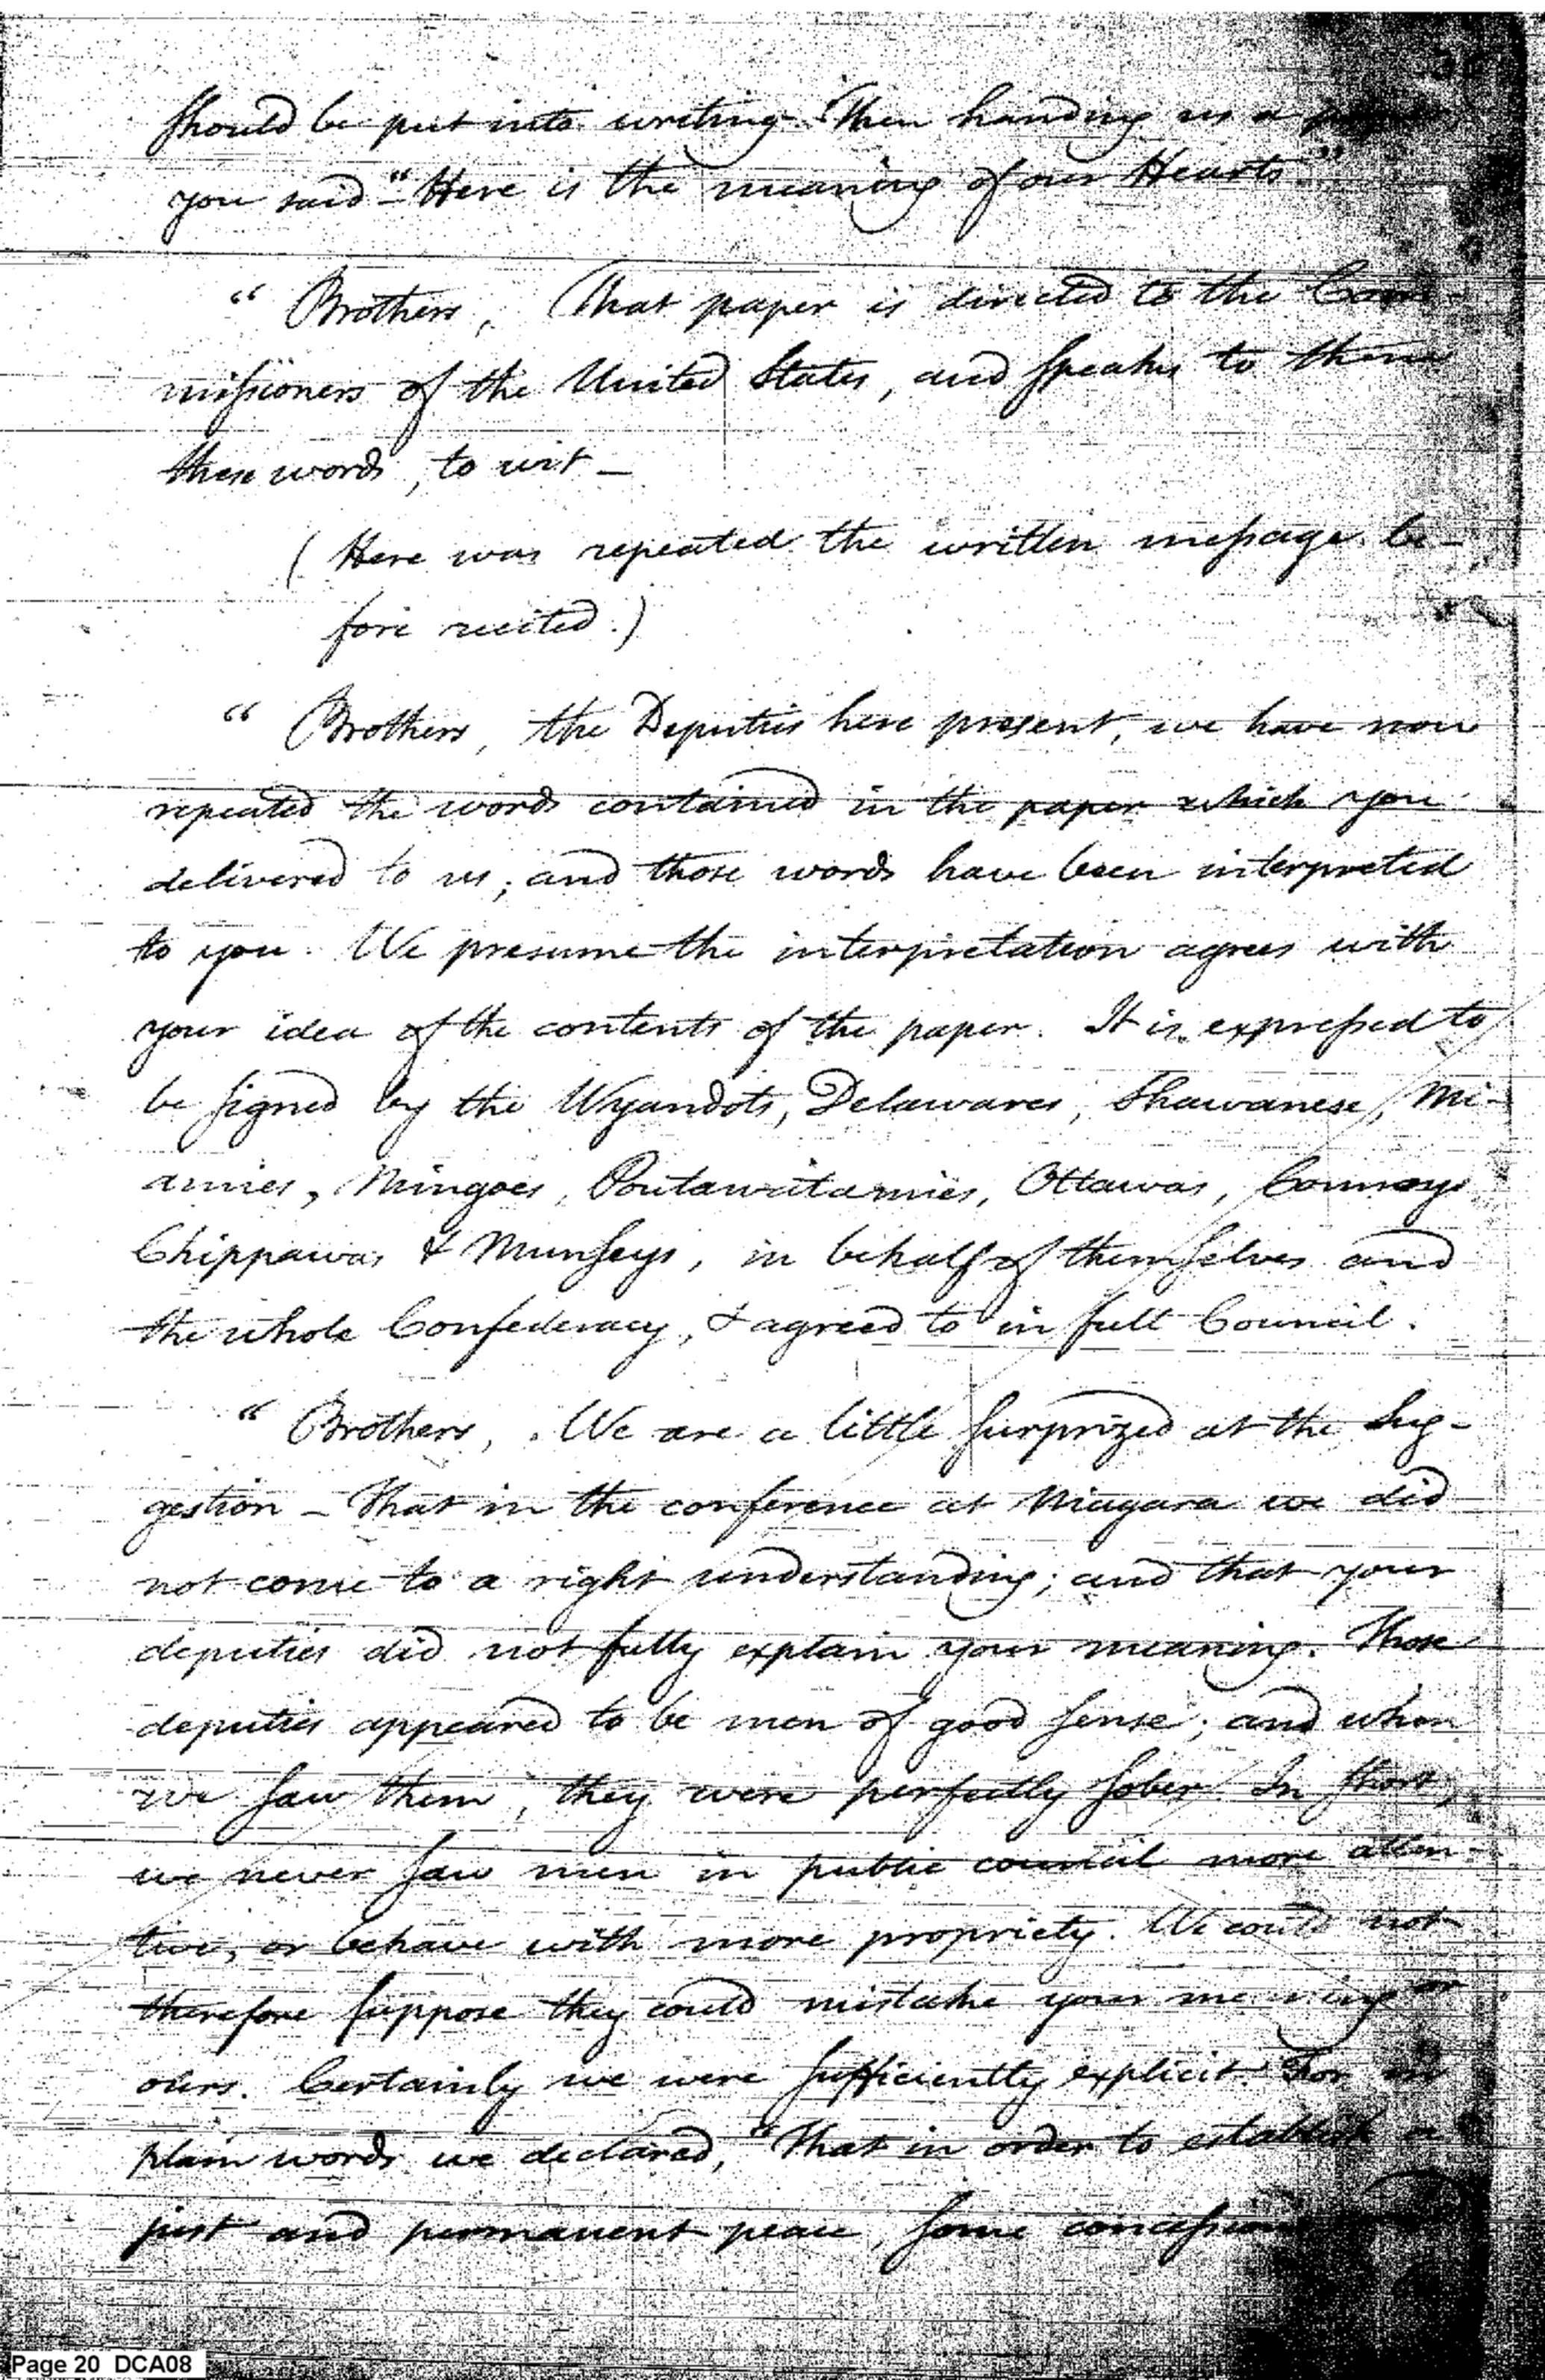 should be put into writing. Then handing us a
you said "Here is the meaning of our Hearts."
" Brothers, That paper is directed to the Com-
missioners of the United States, and speaks to them
these words, to wit —
( Here was repeated the written message be-
fore recited.)
" Brothers, the Deputies here present, we have now
repeated the words contained in the paper which you
delivered to us; and those words have been interpreted
to you. We presume the interpretation agrees with
your idea of the contents of the paper. It is expressed to
be signed by the Wyandots, Delawares, Shawanese, Mi-
amies, Mingoes, Poutawatamies, Ottawas, Connoys
Chippawas & Munseys, in behalf of themselves and
the whole Confederacy, & agreed to in full Council.
" Brothers, We are a little surprized at the sug-
gestion — That in the conference at Niagara we did
not come to a right understanding; and that your
deputies did not fully explain your meaning. Those
deputies appeared to be men of good sense; and when
we saw them, they were perfectly sober. In short,
we never saw men in public council more atten-
tive, or behave with more propriety. We could not
therefore suppose they could mistake your meaning or
ours. Certainly we were sufficiently explicit. For in
plain words we declared, "That in order to establish a
just and permanent peace, some concessions
Page 20 DCA08